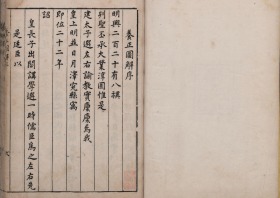 養正圖解序
明興二百二十有八禩
列聖丕承大業淳固惟是
建太子選左右諭教寔慶慶焉我
皇上明並日月澤究寰寓
即位二十二年
詔
皇長子出閤講學選一時儒臣爲之左右充
是廷臣以